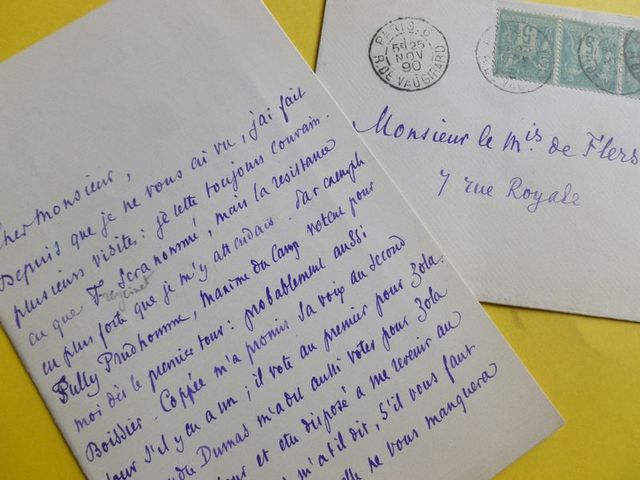 PARIS
5E 25
NOV
90
R. DE VAUGIRARD
Monsieur le Mis de Flers
7 rue Royale
Cher Monsieur,
Depuis que je ne vous ai vu, j'ai fait
plusieurs visites: je toujours
en que F sera nommé, mais la resistance
Freycinet
en plus forte que je m'y attendais. Par exemple
Sully Prudhomme, Maxime du Camp votent pour
moi dès le premier tour: probablement aussi
Boissier. Coppée m'a promis sa voix au second
tour s'il y en a un; il vote au premier pour Zola.
Dumas m'a dit aussi voter pour Zola
et est disposé a me revenir au
m'a t'il dit, s'il vous faut
elle ne vous manquera